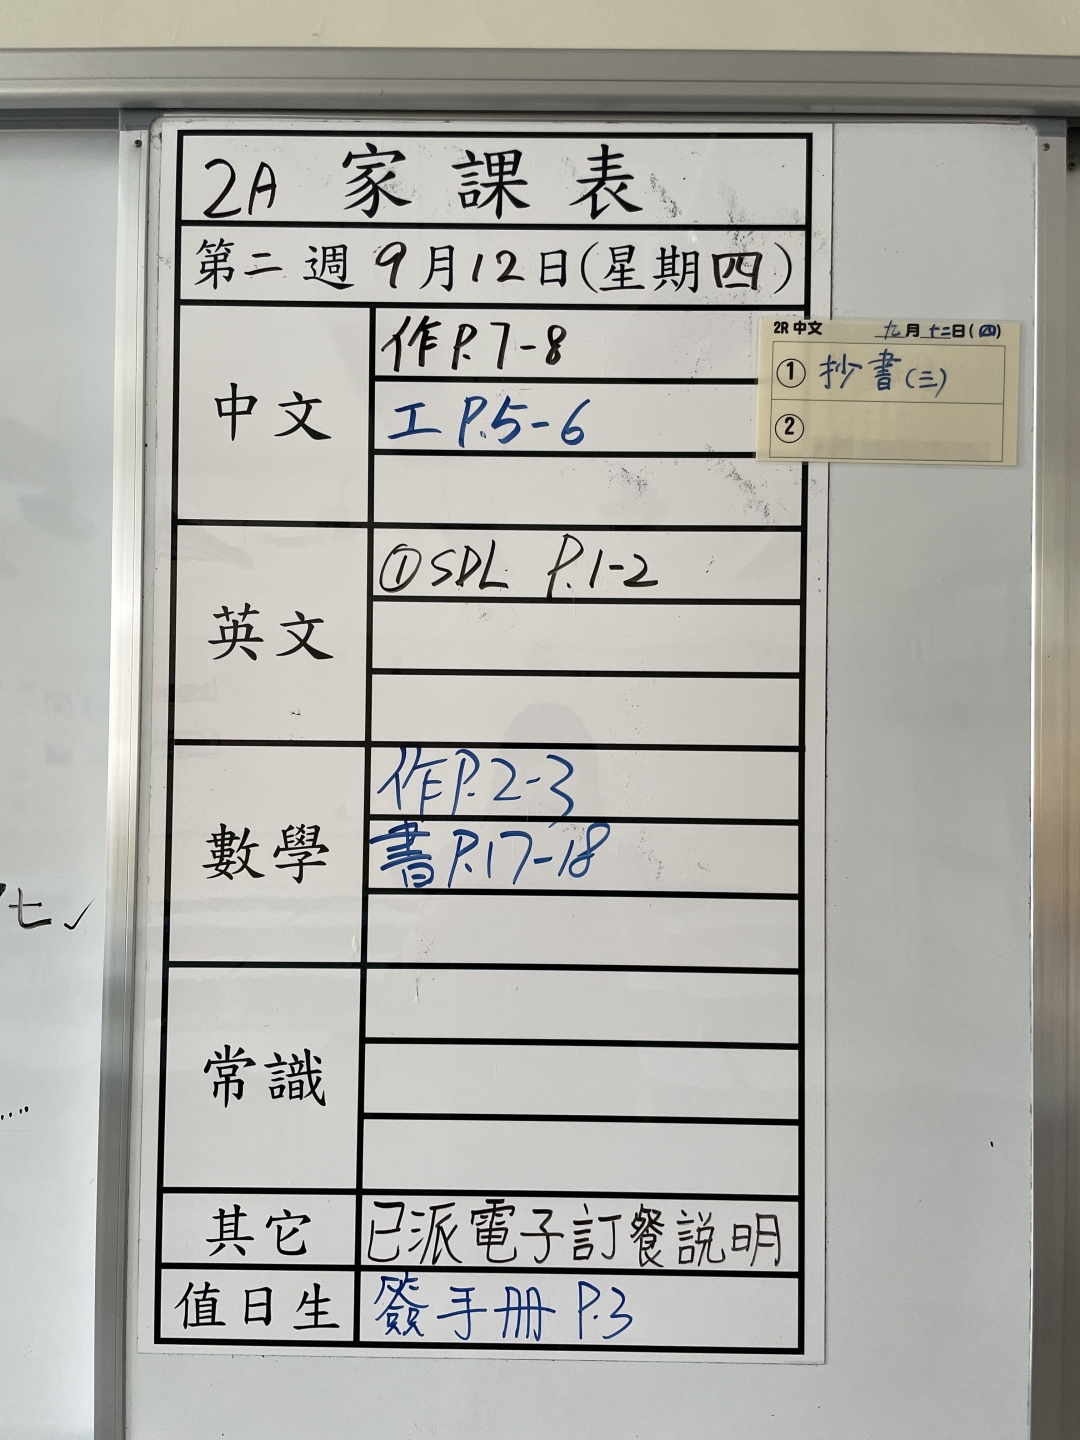 2A 家課表
第二週 9月12日(星期四)
2R 中文 九月十二日(四)
① 抄書(三)
②
中文
作P.7-8
工P.5-6
英文
①SDL P.1-2
數學
作P.2-3
書P.17-18
七✓
常識
其它 已派電子訂餐説明
值日生 簽手冊 P.3